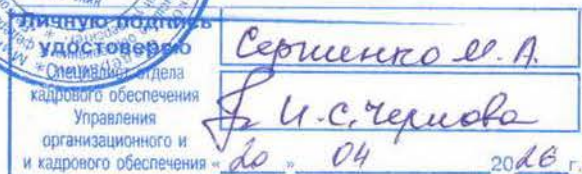 Личную подпись
удостоверяю
Специалист отдела
кадрового обеспечения
Управления
организационного и
и кадрового обеспечения
Сергиенко М. А.
И.С. Чернова
« 20 » 04 2026 г.